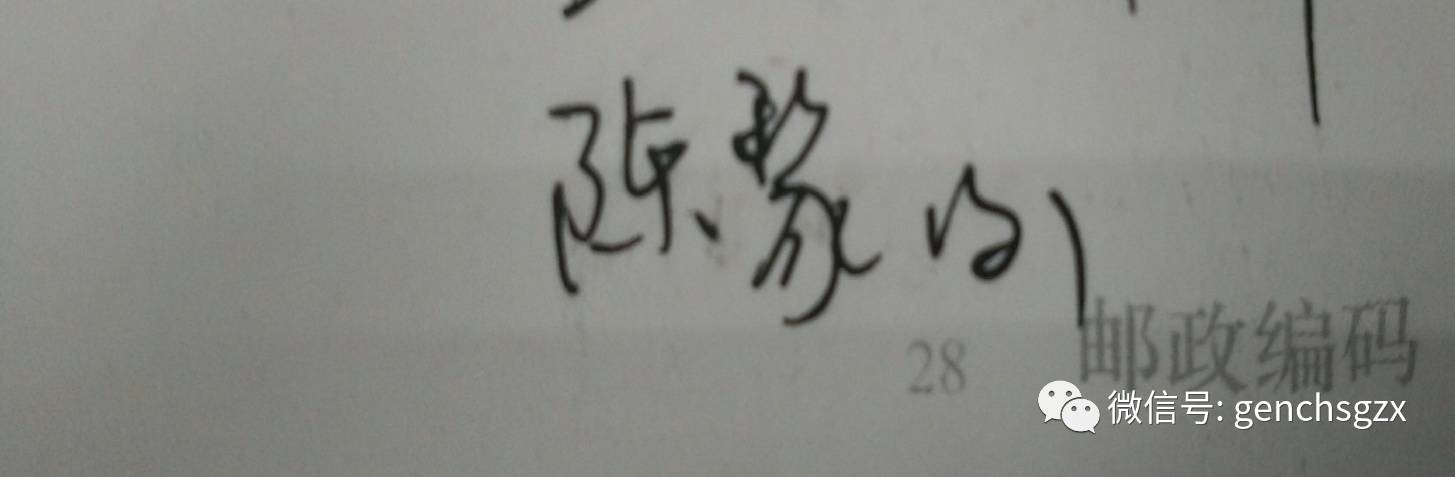 陈黎
28
邮政编码
微信号: genchsgzx